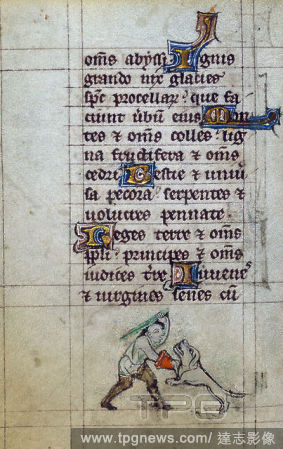 om̄s abyssi Ignis
grando nix glacies
sp̄c procellar̄ · que fa
ciunt úbū eius Mon
tes & om̄s colles · lig
na fructifera & om̄s
cedri Bestie & uniū
sa pecora · serpentes &
uolucres pennate ·
Reges terre & om̄s
ppli · principes & om̄s
iudices tr̄e Iuuenes
& uirgines senes cū
TPG
www.tpgnews.com/ 達志影像